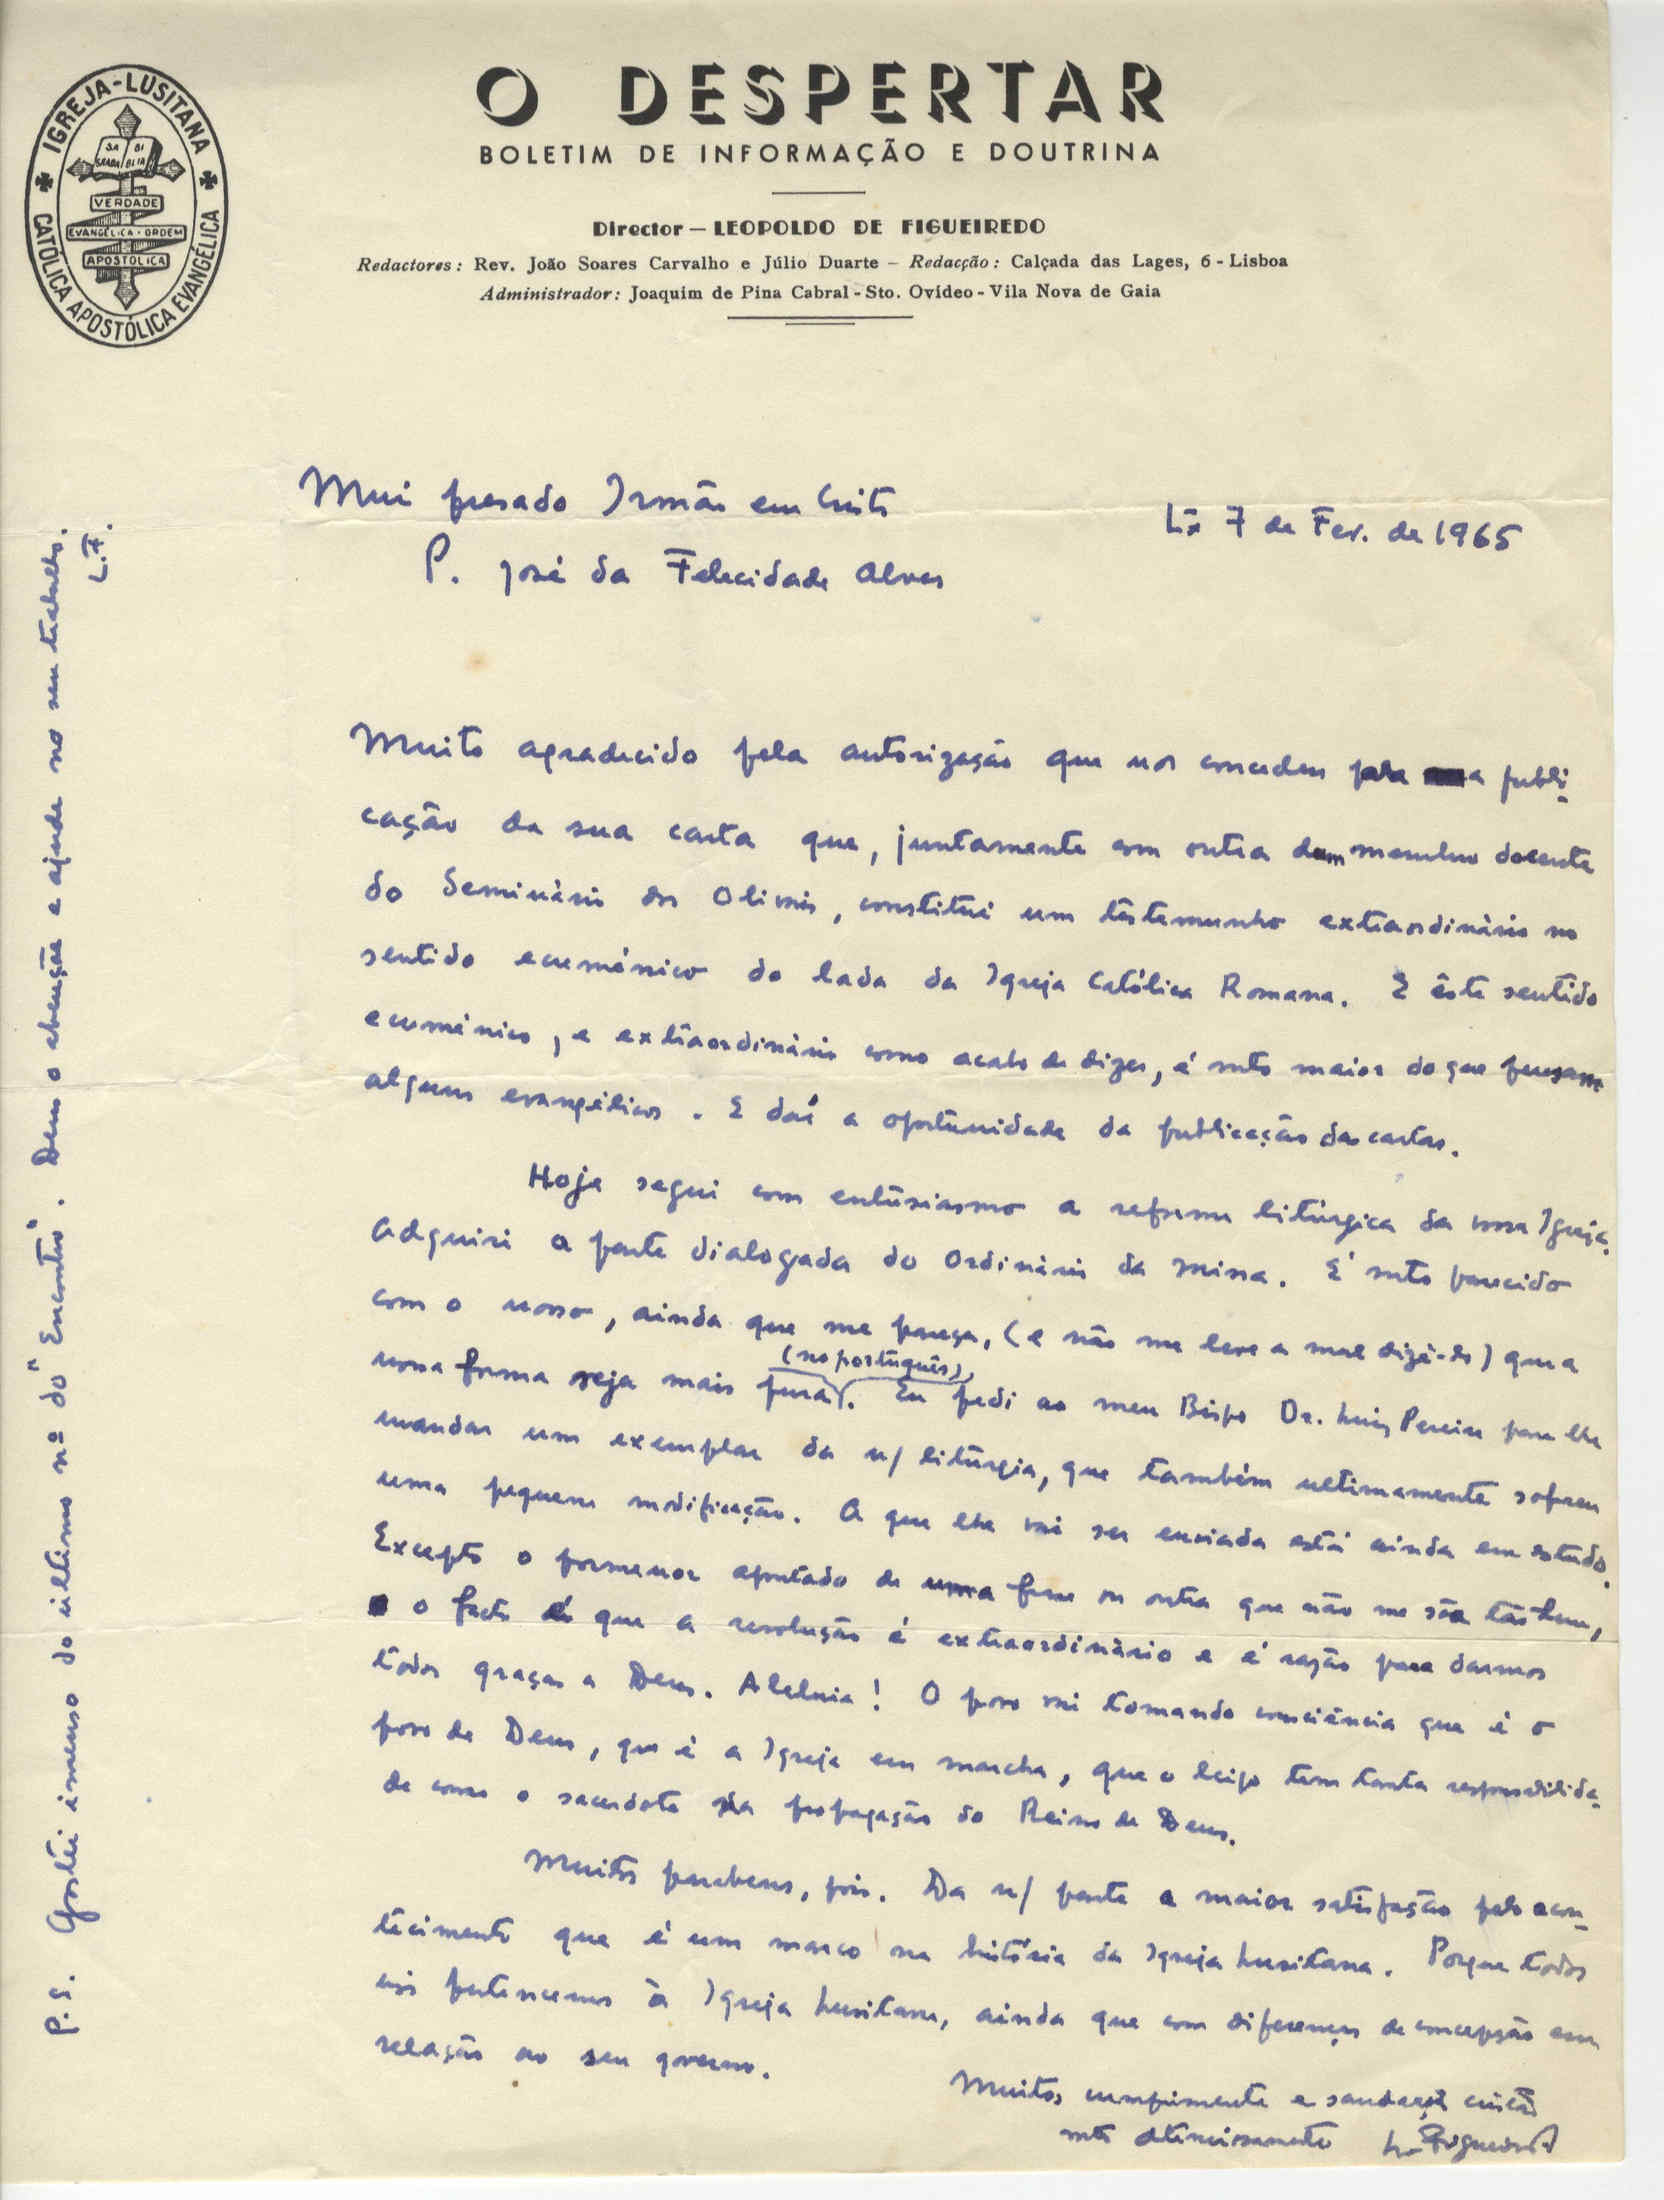 IGREJA-LUSITANA
CATÓLICA APOSTÓLICA EVANGÉLICA
SA BI
GRADA BLIA
VERDADE
EVANGÉLICA-ORDEM
APOSTÓLICA
O DESPERTAR
BOLETIM DE INFORMAÇÃO E DOUTRINA
Director — LEOPOLDO DE FIGUEIREDO
Redactores: Rev. João Soares Carvalho e Júlio Duarte — Redacção: Calçada das Lages, 6 - Lisboa
Administrador: Joaquim de Pina Cabral - Sto. Ovídeo - Vila Nova de Gaia
Mui presado Irmão em Cristo
Lx 7 de Fev. de 1965
P. José da Felecidade Alves
Muito agradecido pela autorização que nos concedeu para a publi-
cação da sua carta que, juntamente com outra dum membro docente
do Seminário dos Olivais, constitui um testemunho extraordinário no
sentido ecuménico do lado da Igreja Católica Romana. E êste sentido
ecuménico, e extraordinário como acabo de dizer, é mto maior do que pensam
alguns evangélicos. E daí a oportunidade da publicação das cartas.
Hoje segui com entusiasmo a reforma litúrgica da vossa Igreja.
Adquiri a parte dialogada do Ordinário da Missa. É mto parecido
com o nosso, ainda que me pareça, (e não me leve a mal dizê-lo) que a
nossa forma seja mais pura (no português). Eu pedi ao meu Bispo Dr. Luís Pereira para lhe
mandar um exemplar da n/ litúrgia, que também ultimamente sofreu
uma pequena modificação. A que lhe vai ser enviada está ainda em estudo.
Excepto o pormenor apontado de uma frase ou outra que não me sôa tão bem,
o facto é que a revolução é extraordinário e é razão para darmos
todos graças a Deus. Aleluia! O povo vai tomando consciência que é o
povo de Deus, que é a Igreja em marcha, que o leigo tem tanta responsabilida-
de como o sacerdote na propagação do Reino de Deus.
Muitos parabens, pois. Da n/ parte a maior satisfação pelo acon-
tecimento que é um marco na história da Igreja Lusitana. Porque todos
nós pertencemos à Igreja Lusitana, ainda que com diferenças de concepção em
relação ao seu governo.
Muitos cumprimentos e saudações cristãs
mto atenciosamente L. Figueiredo
P.S. Gostei imenso do último nº do "Encontro". Deus o abençõe e ajude no seu trabalho.
L.F.